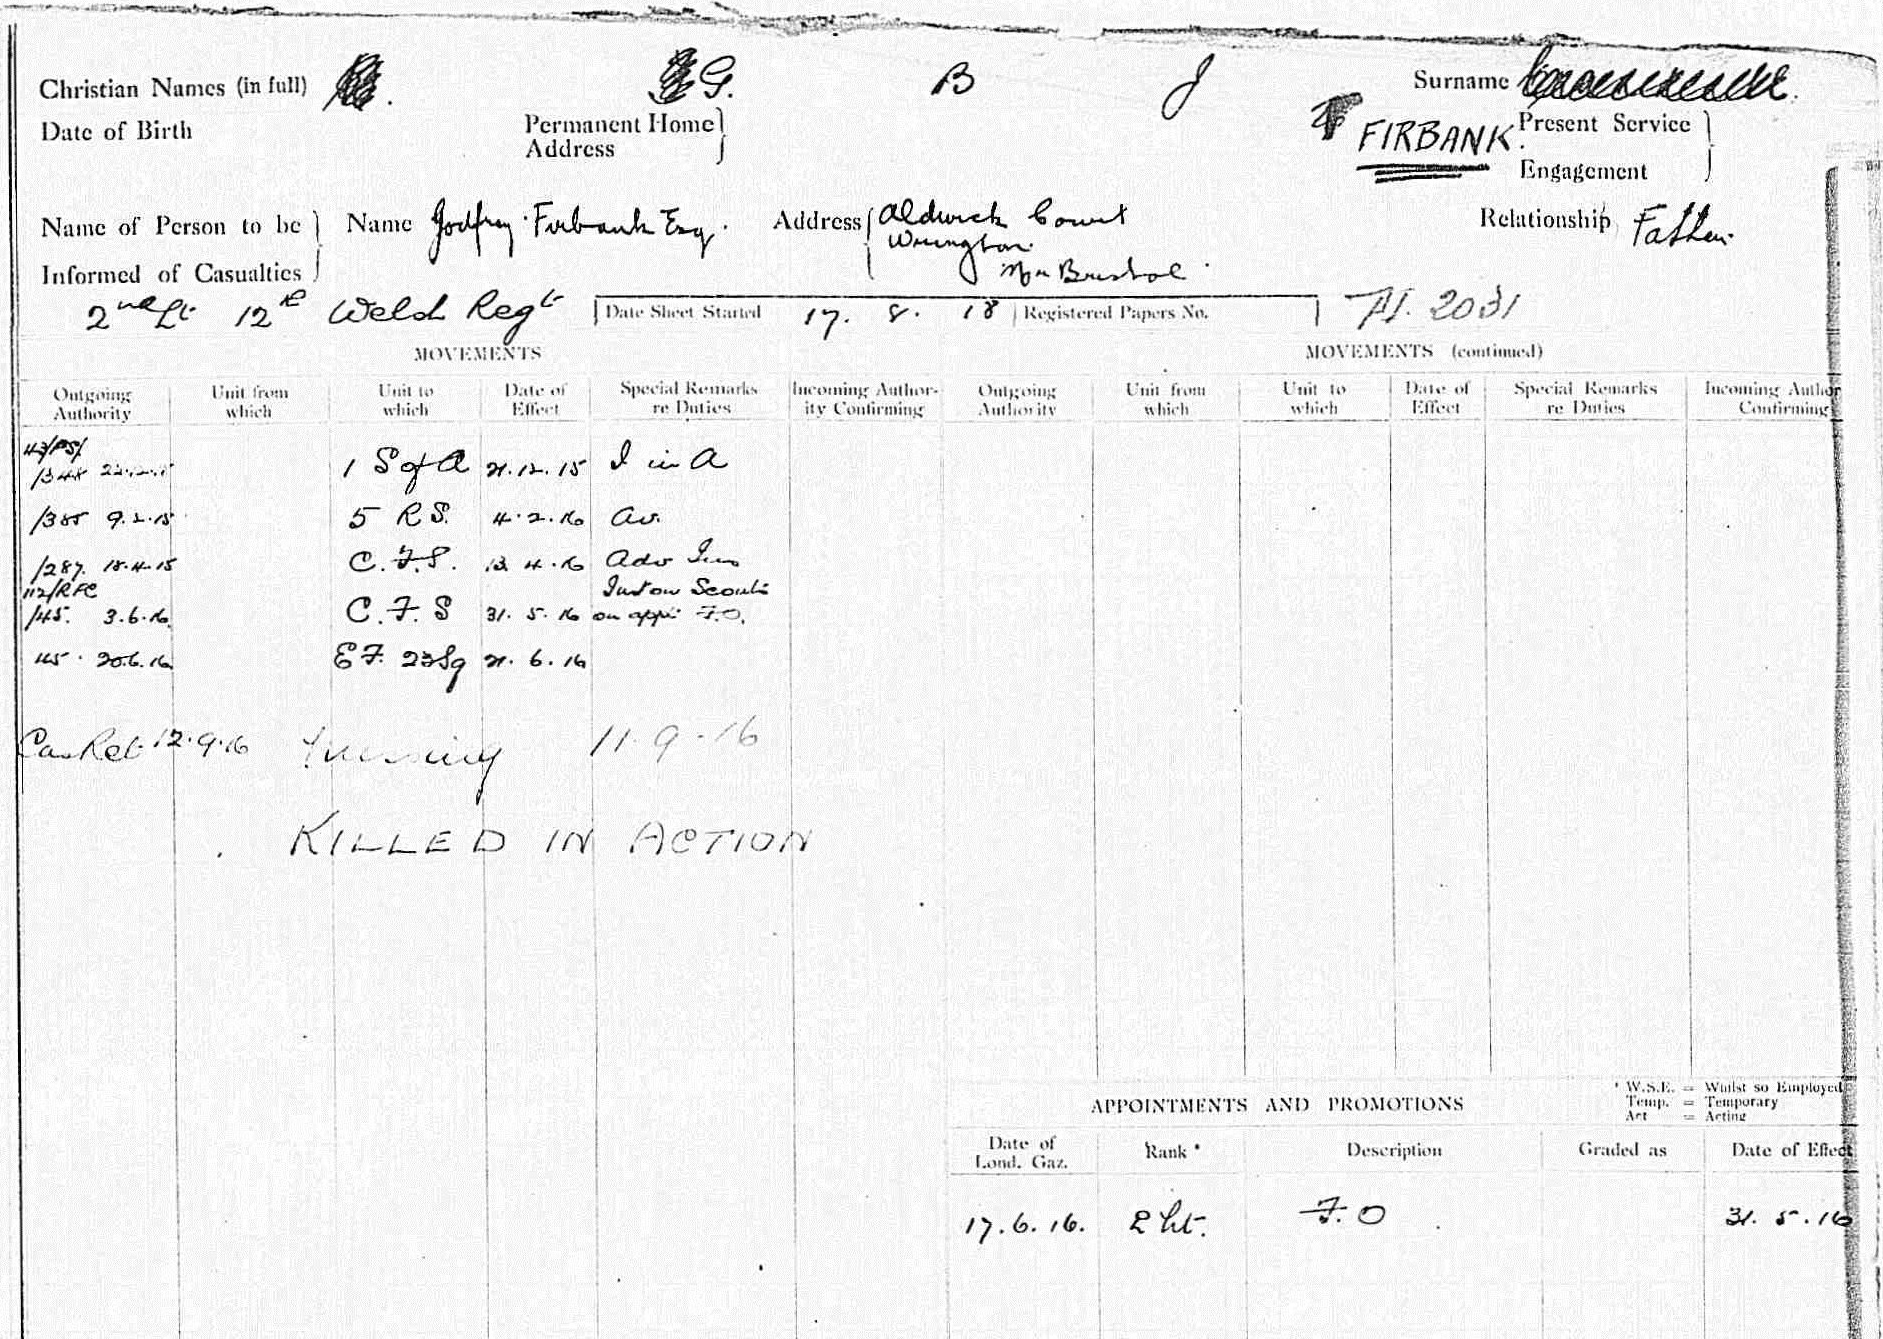 Christian Names (in full) G. B J Surname
Date of Birth Permanent Home Address FIRBANK. Present Service Engagement
Name of Person to be Informed of Casualties Name Godfrey Firbank Esq. Address Aldwick Court
Wrington
Nr Bristol
Relationship Father.
2nd Lt 12th Welsh Regt Date Sheet Started 17. 8. 18 Registered Papers No. 2031
MOVEMENTS MOVEMENTS (continued)
Outgoing Authority Unit from which Unit to which Date of Effect Special Remarks re Duties Incoming Author-ity Confirming Outgoing Authority Unit from which Unit to which Date of Effect Special Remarks re Duties Incoming Author Confirming
43/FS/
/348 1 S of A 21.12.15 I in A
/385 9.2.15 5 R.S. 4.2.16 Av.
/287. 18.4.15 C.F.S. 13.4.16 Adv Ins
112/RFC Inst on Scouts
/45. 3.6.16. C.F.S 31.5.16 on appt F.O.
115. 20.6.16 EF. 23 Sq 21.6.16
Cas Ret 12.9.16 Missing 11.9.16
KILLED IN ACTION
APPOINTMENTS AND PROMOTIONS
* W.S.E. = Whilst so Employed
Temp. = Temporary
Act = Acting
Date of Lond. Gaz. Rank * Description Graded as Date of Effect
17.6.16. 2 Lt. F.O 31.5.16